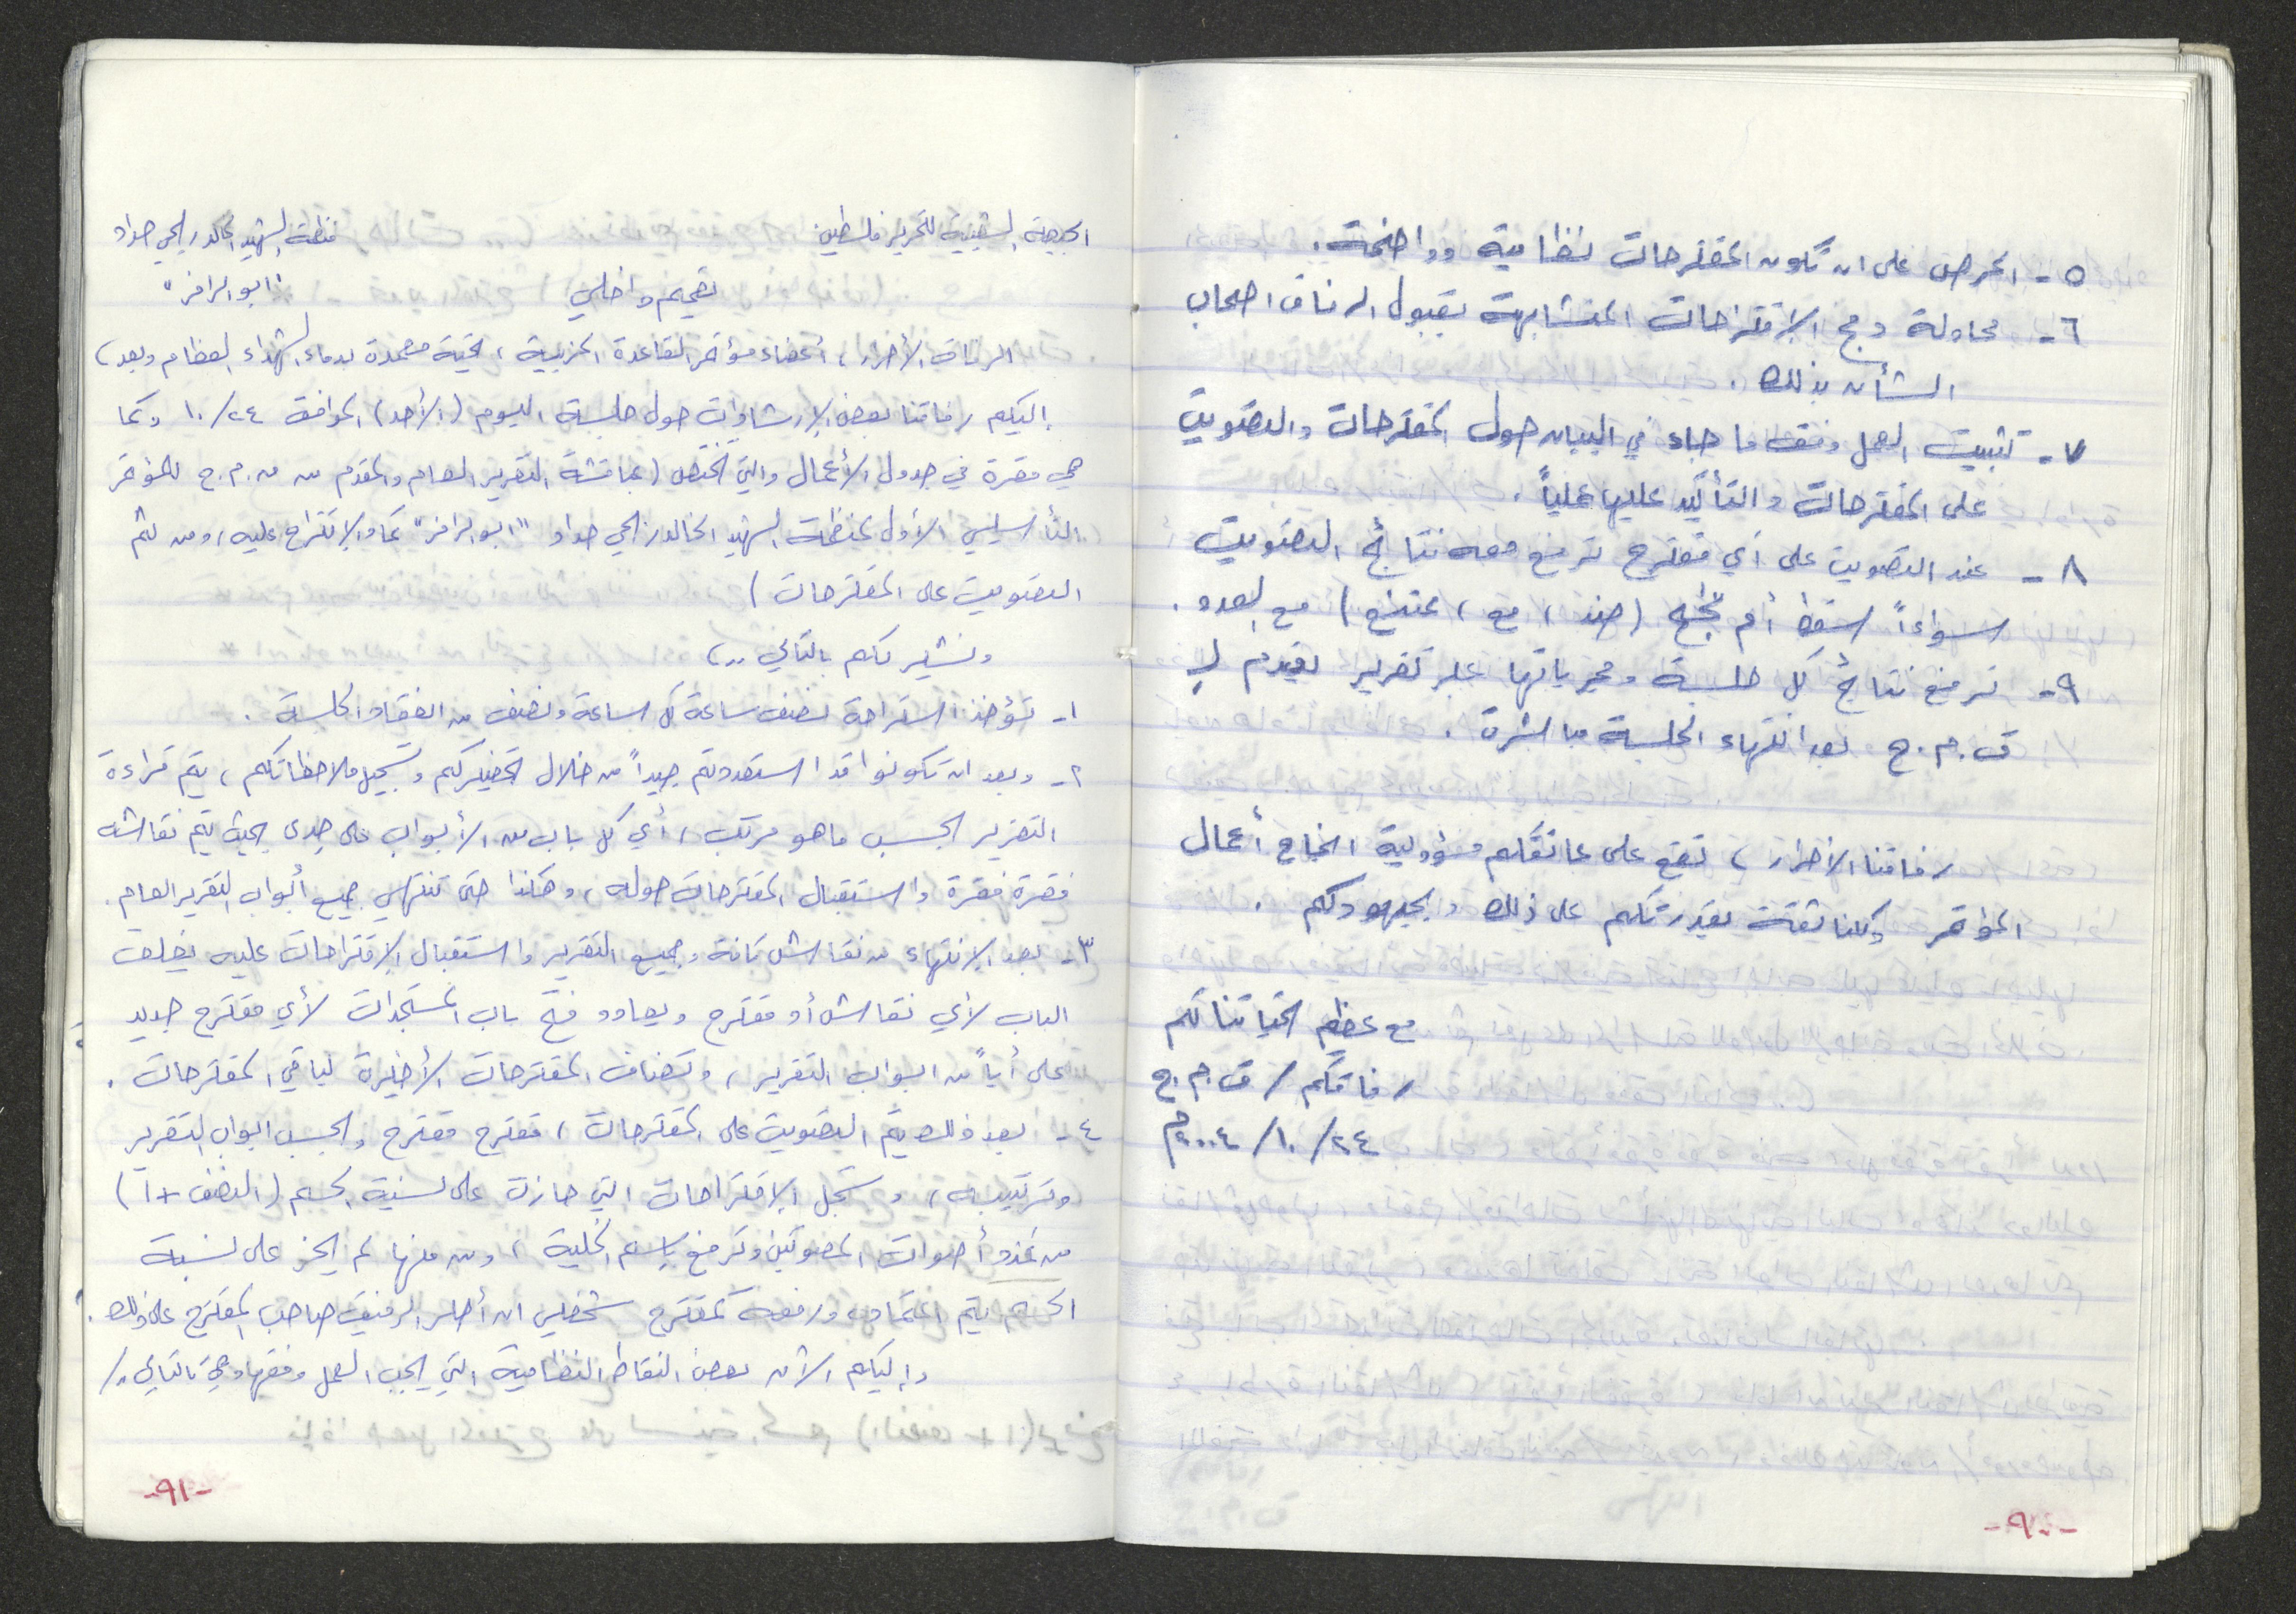 ٥- الحرص على ان تكون المقترحات نظامية وواضحة.
٦- محاولة دمج الإقتراحات المتشابهة بقبول الرفاق اصحاب
الشأن بذلك.
٧- تثبيت العمل وفق ما جاء في البيان حول المقترحات والتصويت
على المقترحات والتأكيد عليها علياً.
٨- عند التصويت على أي مقترح ترفع معه نتائج التصويت
سواءاً اسقط أم نجح (ضد، مع، ممتنع) مع العدد.
٩- ترفع نتائج كل جلسة ومجرياتها عبر تقرير يقدم لـ
ق.م.ج بعد انتهاء الجلسة مباشرة.
رفاقنا الأحرار، تقع على عاتقكم مسؤولية انجاح أعمال
المؤتمر وكلنا ثقة بقدرتكم على ذلك وبجهودكم.
مع عظيم تحياتنا لكم
رفاقكم / ق.م.ج
٢٤/١٠/٢٠٠٤م
-٩٠-
الجبهة الشعبية لتحرير فلسطين
منظمة الشهيد الخالد ربحي حداد
"ابو الرامز"
تعميم داخلي
الرفاق الأحرار، أعضاء مؤتمر القاعدة الحزبية، تحية معمدة بدماء الشهداء العظام وبعد،
اليكم رفاقنا بعض الإرشادات حول جلسة اليوم (الأحد) الموافق ٢٤/١٠ وكما
هي مقرة في جدول الأعمال والتي تختص (بمناقشة التقرير العام والمقدم من ق.م.ج للمؤتمر
التأسيسي الأول لمنظمة الشهيد الخالد ربحي حداد "ابو الرامز" كما والإقتراح عليه، ومن ثم
التصويت على المقترحات)
ونشير لكم بالتالي..،
١- تؤخذ استراحة نصف ساعة كل ساعة ونصف من انعقاد الجلسة.
٢- وبعد ان تكونوا قد استعددتم جيداً من خلال تحضيركم وتسجيل ملاحظاتكم، يتم قراءة
التقرير بحسب ما هو مرتب، أي كل باب من الأبواب على حدى بحيث يتم نقاشه
فقرة فقرة واستقبال المقترحات حوله، وهكذا حتى تنتهي جميع أبواب التقرير العام.
٣- بعد الإنتهاء من نقاش كافة وجميع التقرير واستقبال الإقتراحات عليه يغلق
الباب لأي نقاش أو مقترح ويعاود فتح باب المستجدات لأي مقترح جديد
على أياً من ابواب التقرير، وتضاف المقترحات الأخيرة لباقي المقترحات.
٤- بعد ذلك يتم التصويت على المقترحات، مقترح مقترح وبحسب ابواب التقرير
وترتيبه، وتسجل الإقتراحات التي حازت على نسبة الحسم (النصف +١)
من عدد أصوات المصوتين وترفع باسم الخلية، ومن منها لم يحز على نسبة
الحسم يتم اعتماده ورفعه كمقترح شخصي ان أصر الرفيق صاحب المقترح على ذلك.
وإليكم الآن بعض النقاط النظامية التي يجب العمل وفقها وهي كالتالي/
-٩١-